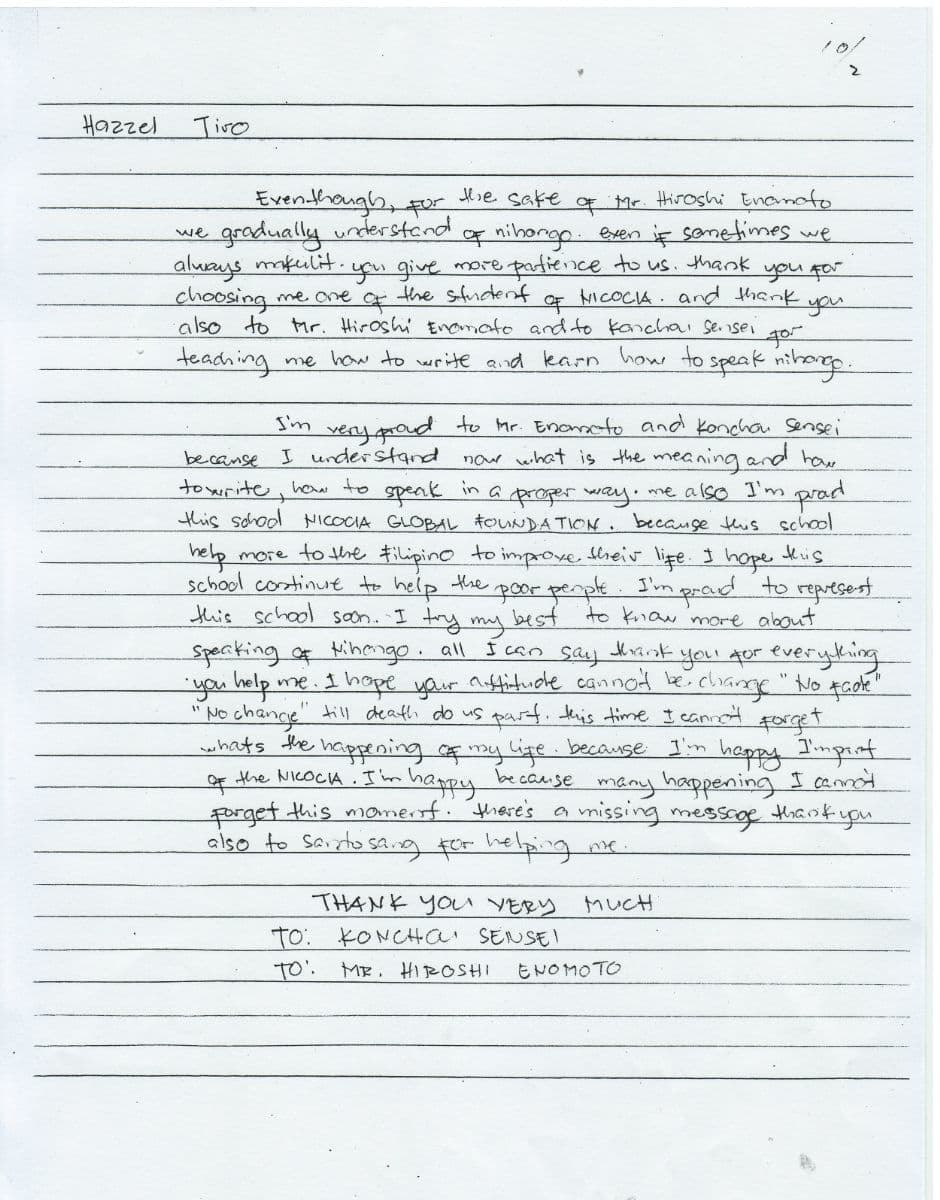 10/2
Hazzel Tiro
Eventhough, for the sake of Mr. Hiroshi Enomoto
we gradually understand of nihongo. even if sometimes we
always makulit. you give more patience to us. thank you for
choosing me one of the student of NICOCIA. and thank you
also to Mr. Hiroshi Enomoto and to Konchai Sensei for
teaching me how to write and learn how to speak nihongo.
I'm very proud to Mr. Enomoto and Konchai Sensei
because I understand now what is the meaning and how
to write, how to speak in a proper way. me also I'm proud
this school NICOCIA GLOBAL FOUNDATION. because this school
help more to the filipino to improve their life. I hope this
school continue to help the poor people. I'm proud to represent
this school soon. I try my best to know more about
speaking of Nihongo. all I can say thank you for everything
you help me. I hope your attitude cannot be change "No fade"
"No change" till death do us part. this time I cannot forget
whats the happening of my life. because I'm happy I'm part
of the NICOCIA. I'm happy because many happening I cannot
forget this moment. there's a missing message thank you
also to sang for helping me.
THANK YOU VERY MUCH
TO: KONCHAI SENSEI
TO: MR. HIROSHI ENOMOTO